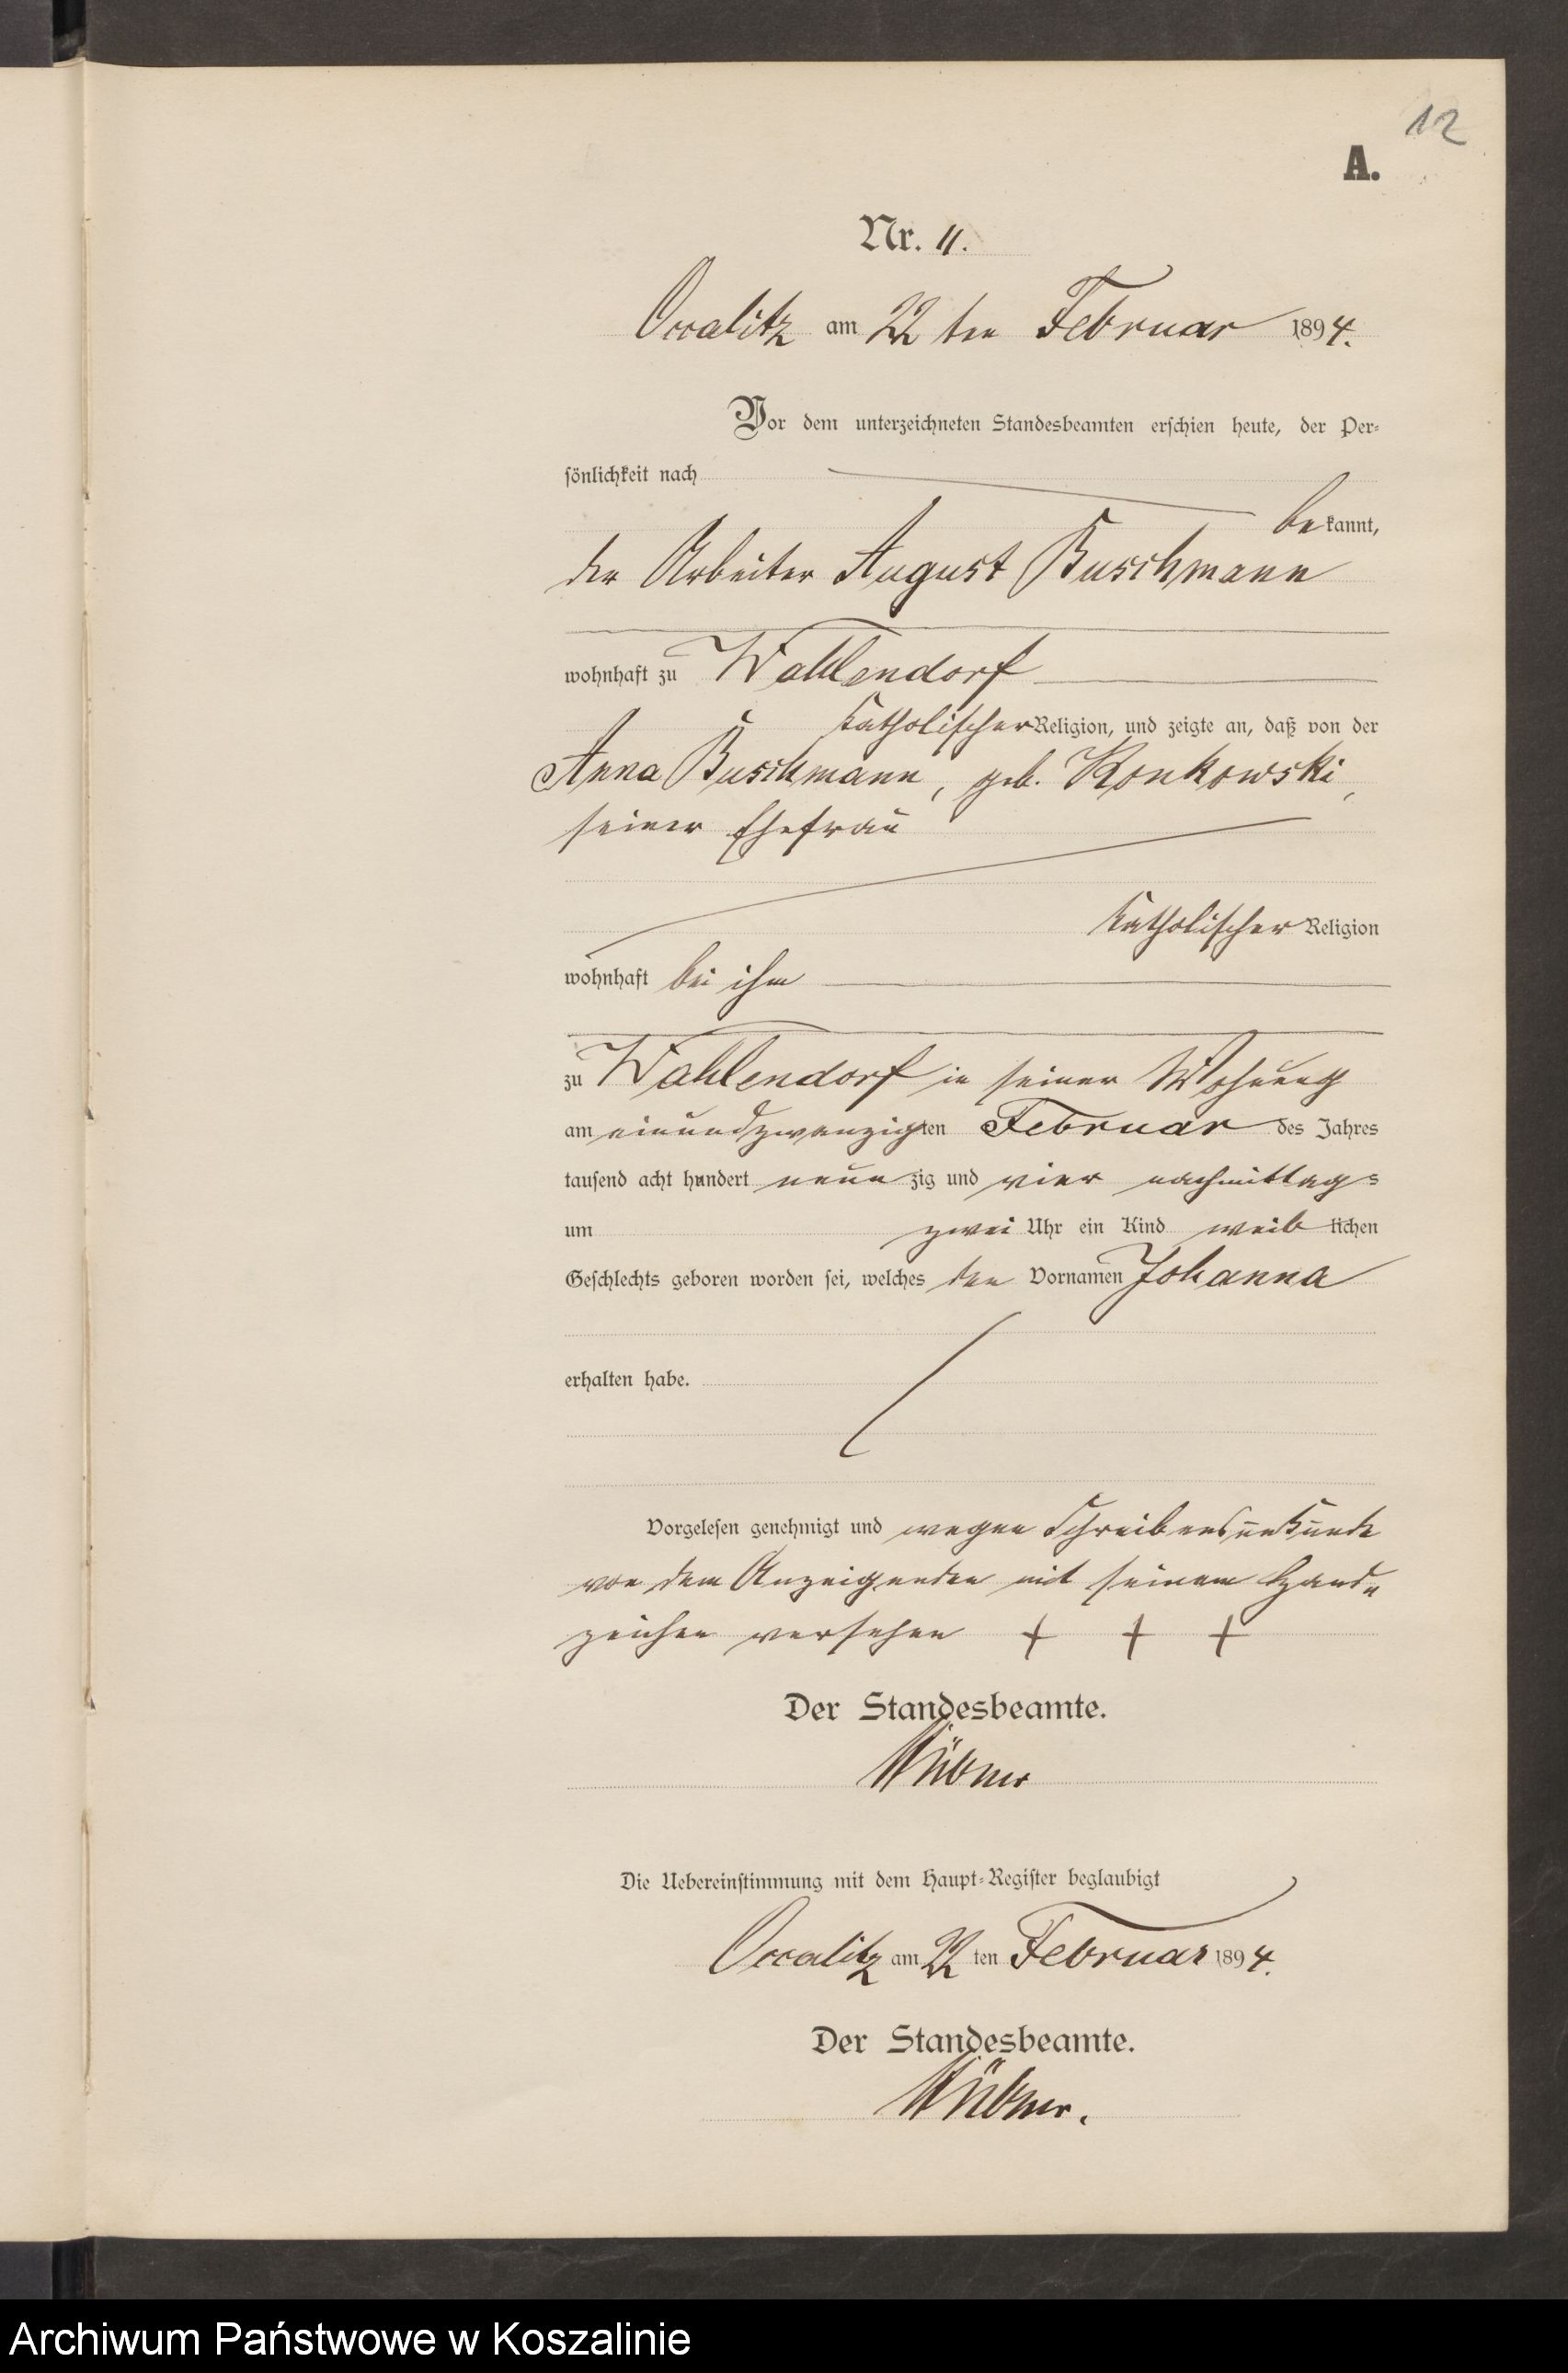 12
A.
Nr. 11.
Occalitz am 22 ten Februar 1894.
Vor dem unterzeichneten Standesbeamten erschien heute, der Per-
sönlichkeit nach
bekannt,
der Arbeiter August Buschmann
wohnhaft zu Wahlendorf
katholischer Religion, und zeigte an, daß von der
Anna Buschmann, geb. Konkowski,
seiner Ehefrau
katholischer Religion
wohnhaft bei ihm
zu Wahlendorf in seiner Wohnung
am einundzwanzigten Februar des Jahres
tausend acht hundert neunzig und vier nachmittags
um zwei Uhr ein Kind weiblichen
Geschlechts geboren worden sei, welches den Vornamen Johanna
erhalten habe.
Vorgelesen genehmigt und wegen Schreibensunkunde
von dem Anzeigenden mit seinem Hand-
zeichen versehen + + +
Der Standesbeamte.
Die Uebereinstimmung mit dem Haupt-Register beglaubigt
Occalitz am 22 ten Februar 1894.
Der Standesbeamte.
Archiwum Państwowe w Koszalinie